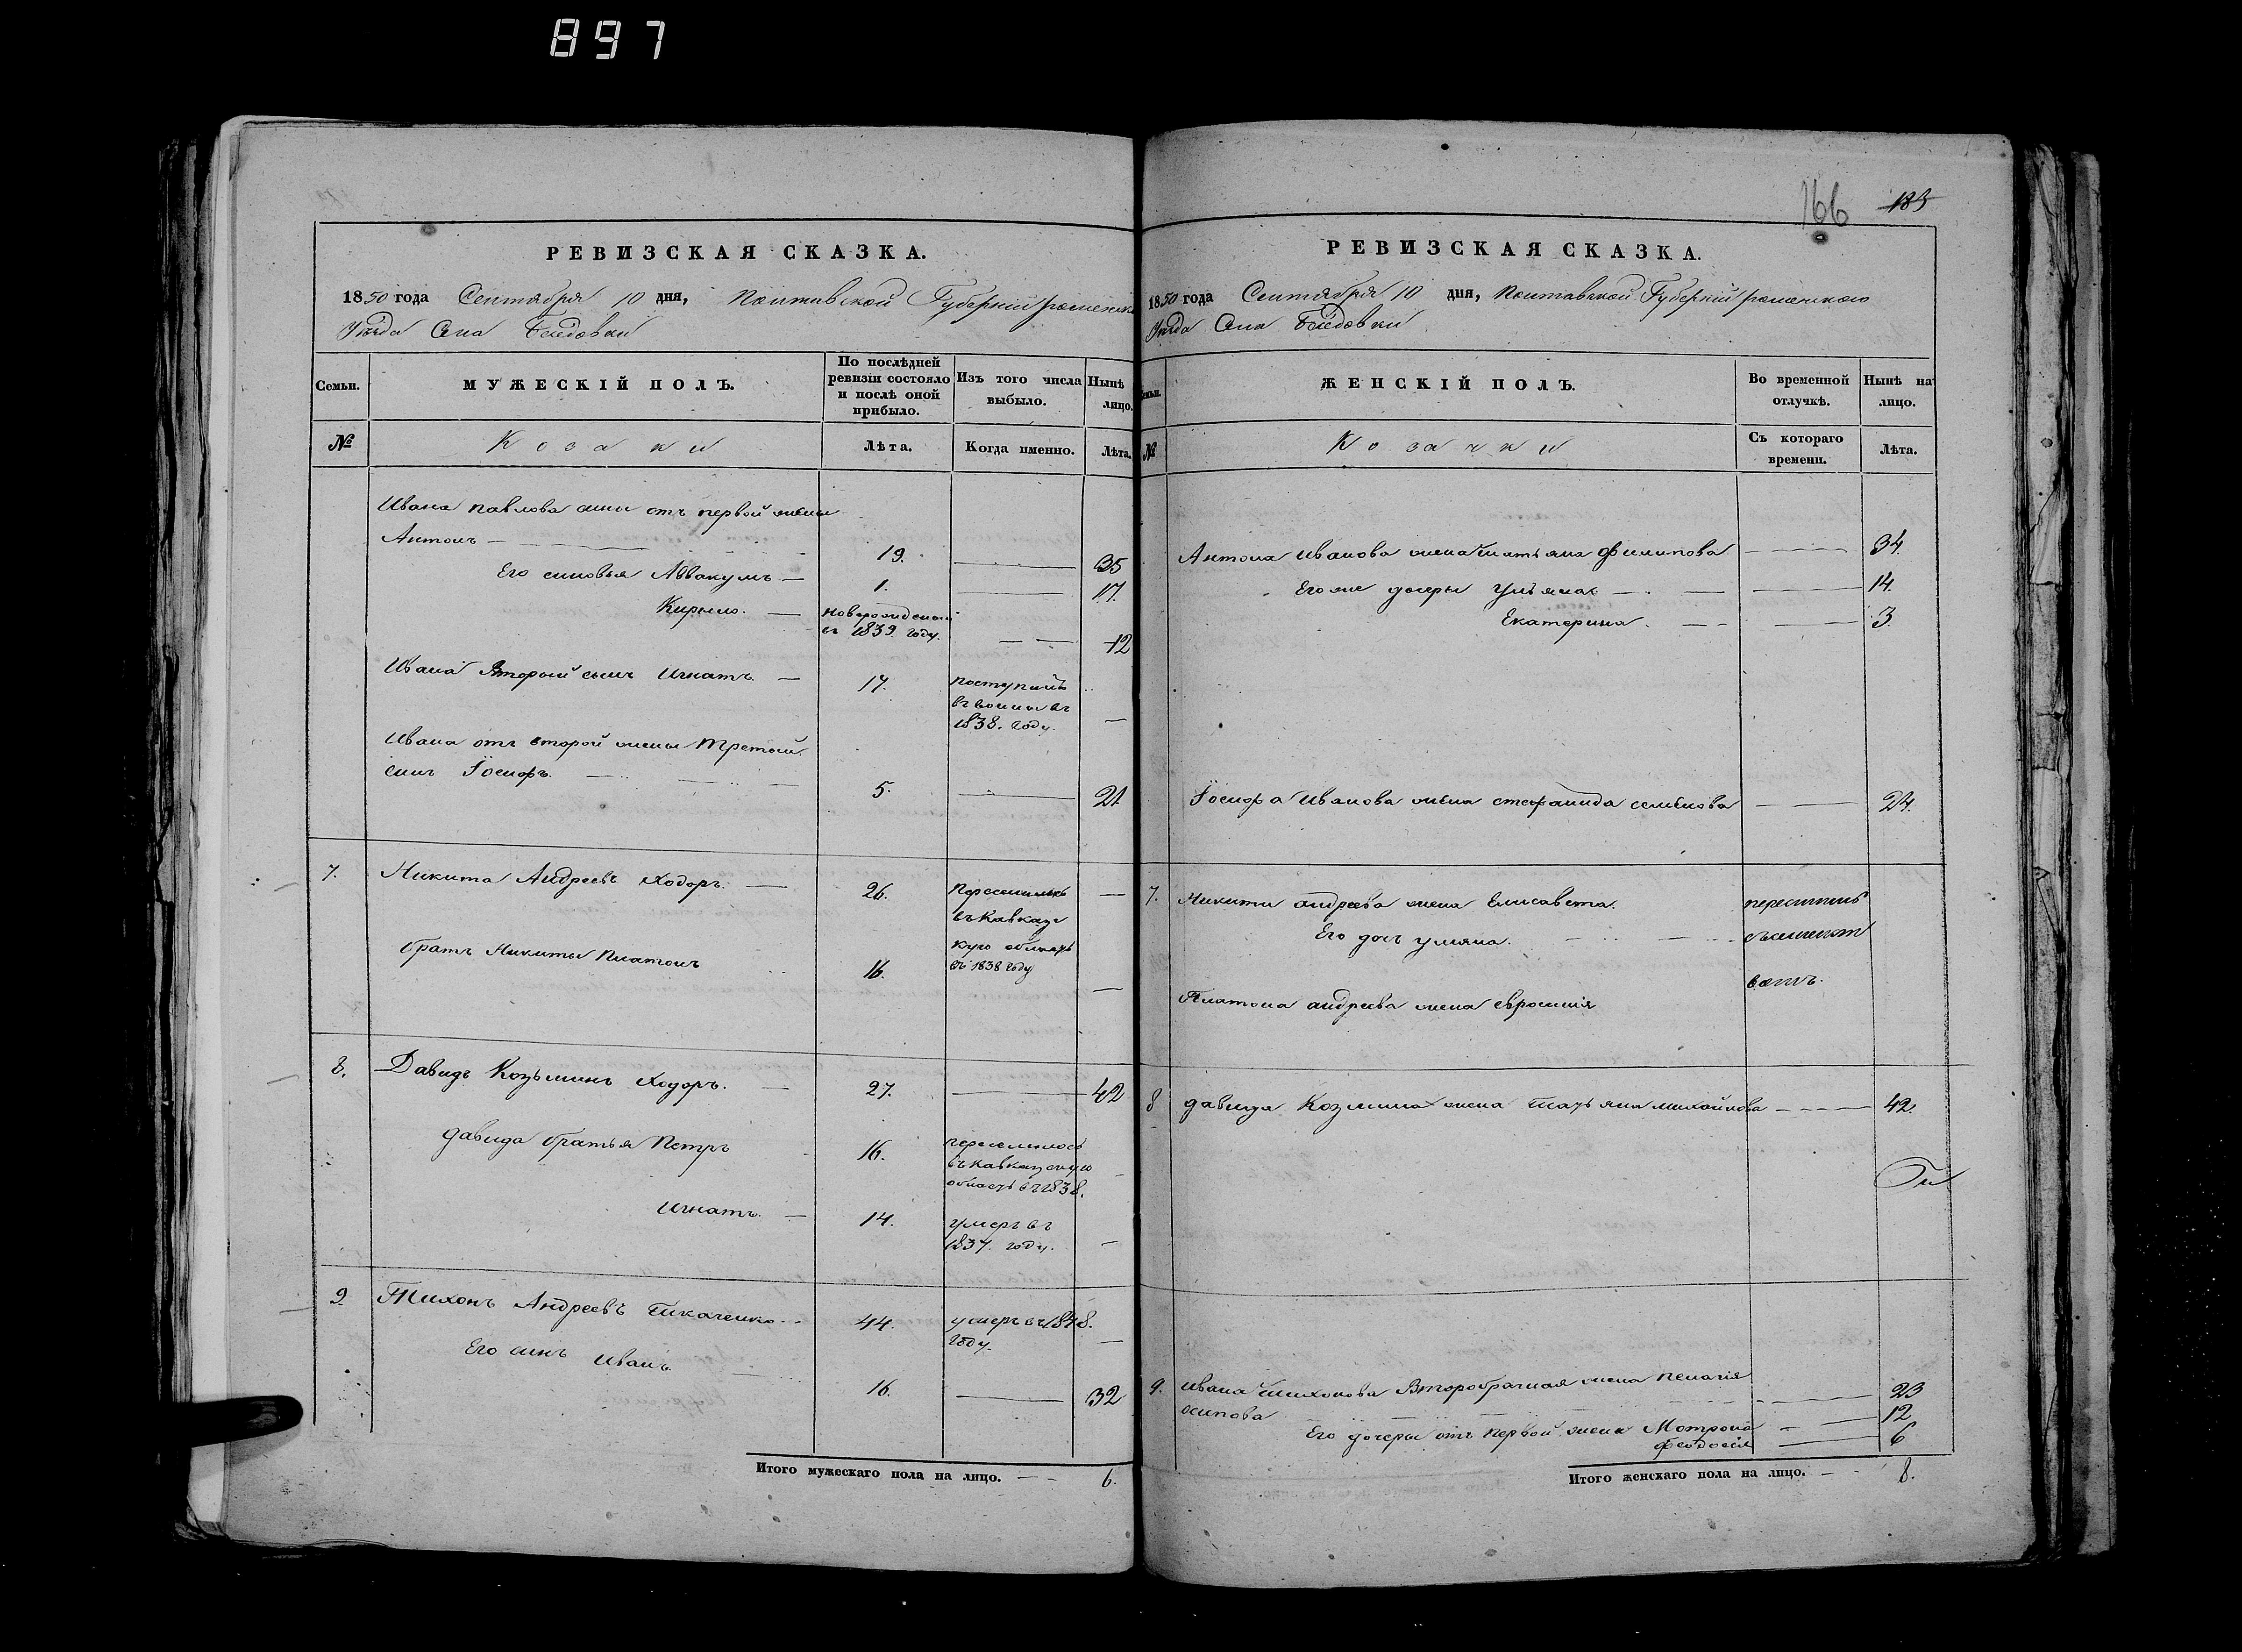 897
166 183
РЕВИЗСКАЯ СКАЗКА.
1850 года Сентября 10 дня, Полтавской Губерніи роменска
Уѣзда Села Беѣдовки
Семьи. МУЖЕСКІЙ ПОЛЪ. По послѣдней ревизіи состояло и послѣ оной прибыло. Изъ того числа выбыло. Нынѣ лицо.
№ Козаки Лѣта. Когда именно. Лѣта.
Ивана павлова сыны отъ первой жены
Антонъ — 19. — 35
Его сыновья Аввакумъ — 1. — 17.
Кирыло. — новорожденой въ 1839 году. — 12
Ивана Вторый сынъ Игнатъ. — 17. поступилъ въ воины въ 1838. году. —
Ивана отъ второй жены Третый
сынъ Іосифъ. — 5. — 21
7. Никита Андреевъ Ходоръ. — 26. Переселились въ Кавказ —
братъ Никиты Платонъ 16. кую область въ 1838 году —
8. Давидъ Козьминъ Ходоръ. — 27. — 42
давида братья Петръ 16. переселилось въ Кавказскую область въ 1838. —
Игнатъ. — 14. умеръ въ 1837. году. —
9. Тихонъ Андреевъ Ткаченко. 44. умеръ въ 1848. году. —
Его сынъ Иванъ. 16. — 32
Итого мужескаго пола на лицо. — 6.
РЕВИЗСКАЯ СКАЗКА.
1850 года Сентября 10 дня, Полтавской Губерніи роменского
Уѣзда Села Беѣдовки
ЖЕНСКІЙ ПОЛЪ. Во временной отлучкѣ. Нынѣ на лицо.
№ Козачки Съ котораго времени. Лѣта.
Антона Иванова жена татьяна Филипова — 34.
Его же дочеры Ульяна — 14.
Екатерина. — 3.
Іосифа Иванова жена стефанида семенова — 24.
7. Никити андреева жена Елисавета.
Его дочъ уляна.
Платона андреева жена евросинія
8 давида Козмина жена татьяна михайлова — 42.
9. Ивана тихонова Второбрачная жена пелагія — 23
осипова
Его дочеры отъ первой жены Мотрона — 12
Феодосія — 6
Итого женскаго пола на лицо. — 8.